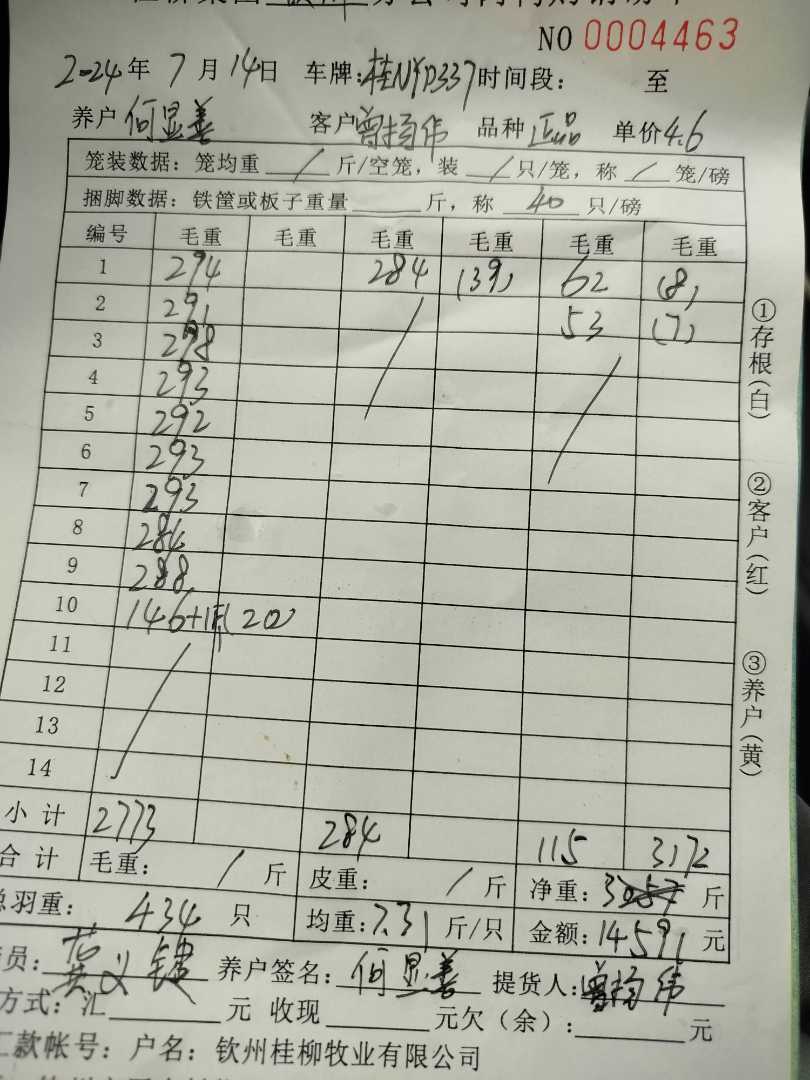 NO 0004463
2024年 7月 14日 车牌:桂NYD337 时间段: 至
养户 何显善 客户 曾扬伟 品种 正品 单价4.6
笼装数据: 笼均重 / 斤/空笼, 装 / 只/笼, 称 / 笼/磅
捆脚数据: 铁筐或板子重量 斤, 称 40 只/磅
编号 毛重 毛重 毛重 毛重 毛重 毛重
1 294 284 (39) 62 (8)
2 291 53 (7)
3 298
4 293
5 292
6 293
7 293
8 284
9 288
10 146+1 (20)
11
12
13
14
小计 2773 284 115 3172
合计 毛重: / 斤 皮重: / 斤 净重: 3057 斤
总羽重: 434 只 均重: 7.31 斤/只 金额: 14591 元
员: 黄义 养户签名: 何显善 提货人: 曾扬伟
方式: 汇 元 收现 元欠(余): 元
汇款帐号: 户名: 钦州桂柳牧业有限公司
①存根(白)
②客户(红)
③养户(黄)